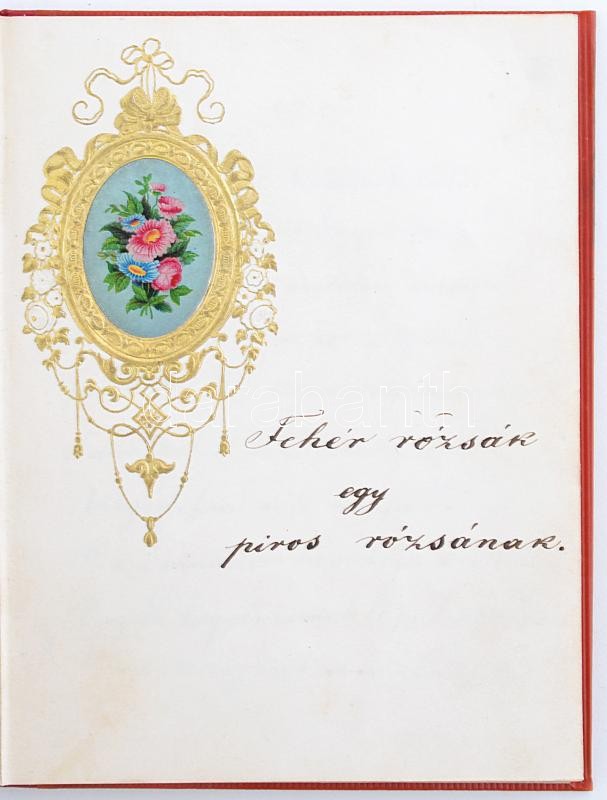 darabanth
Fehér rózsák
egy
piros rózsának.